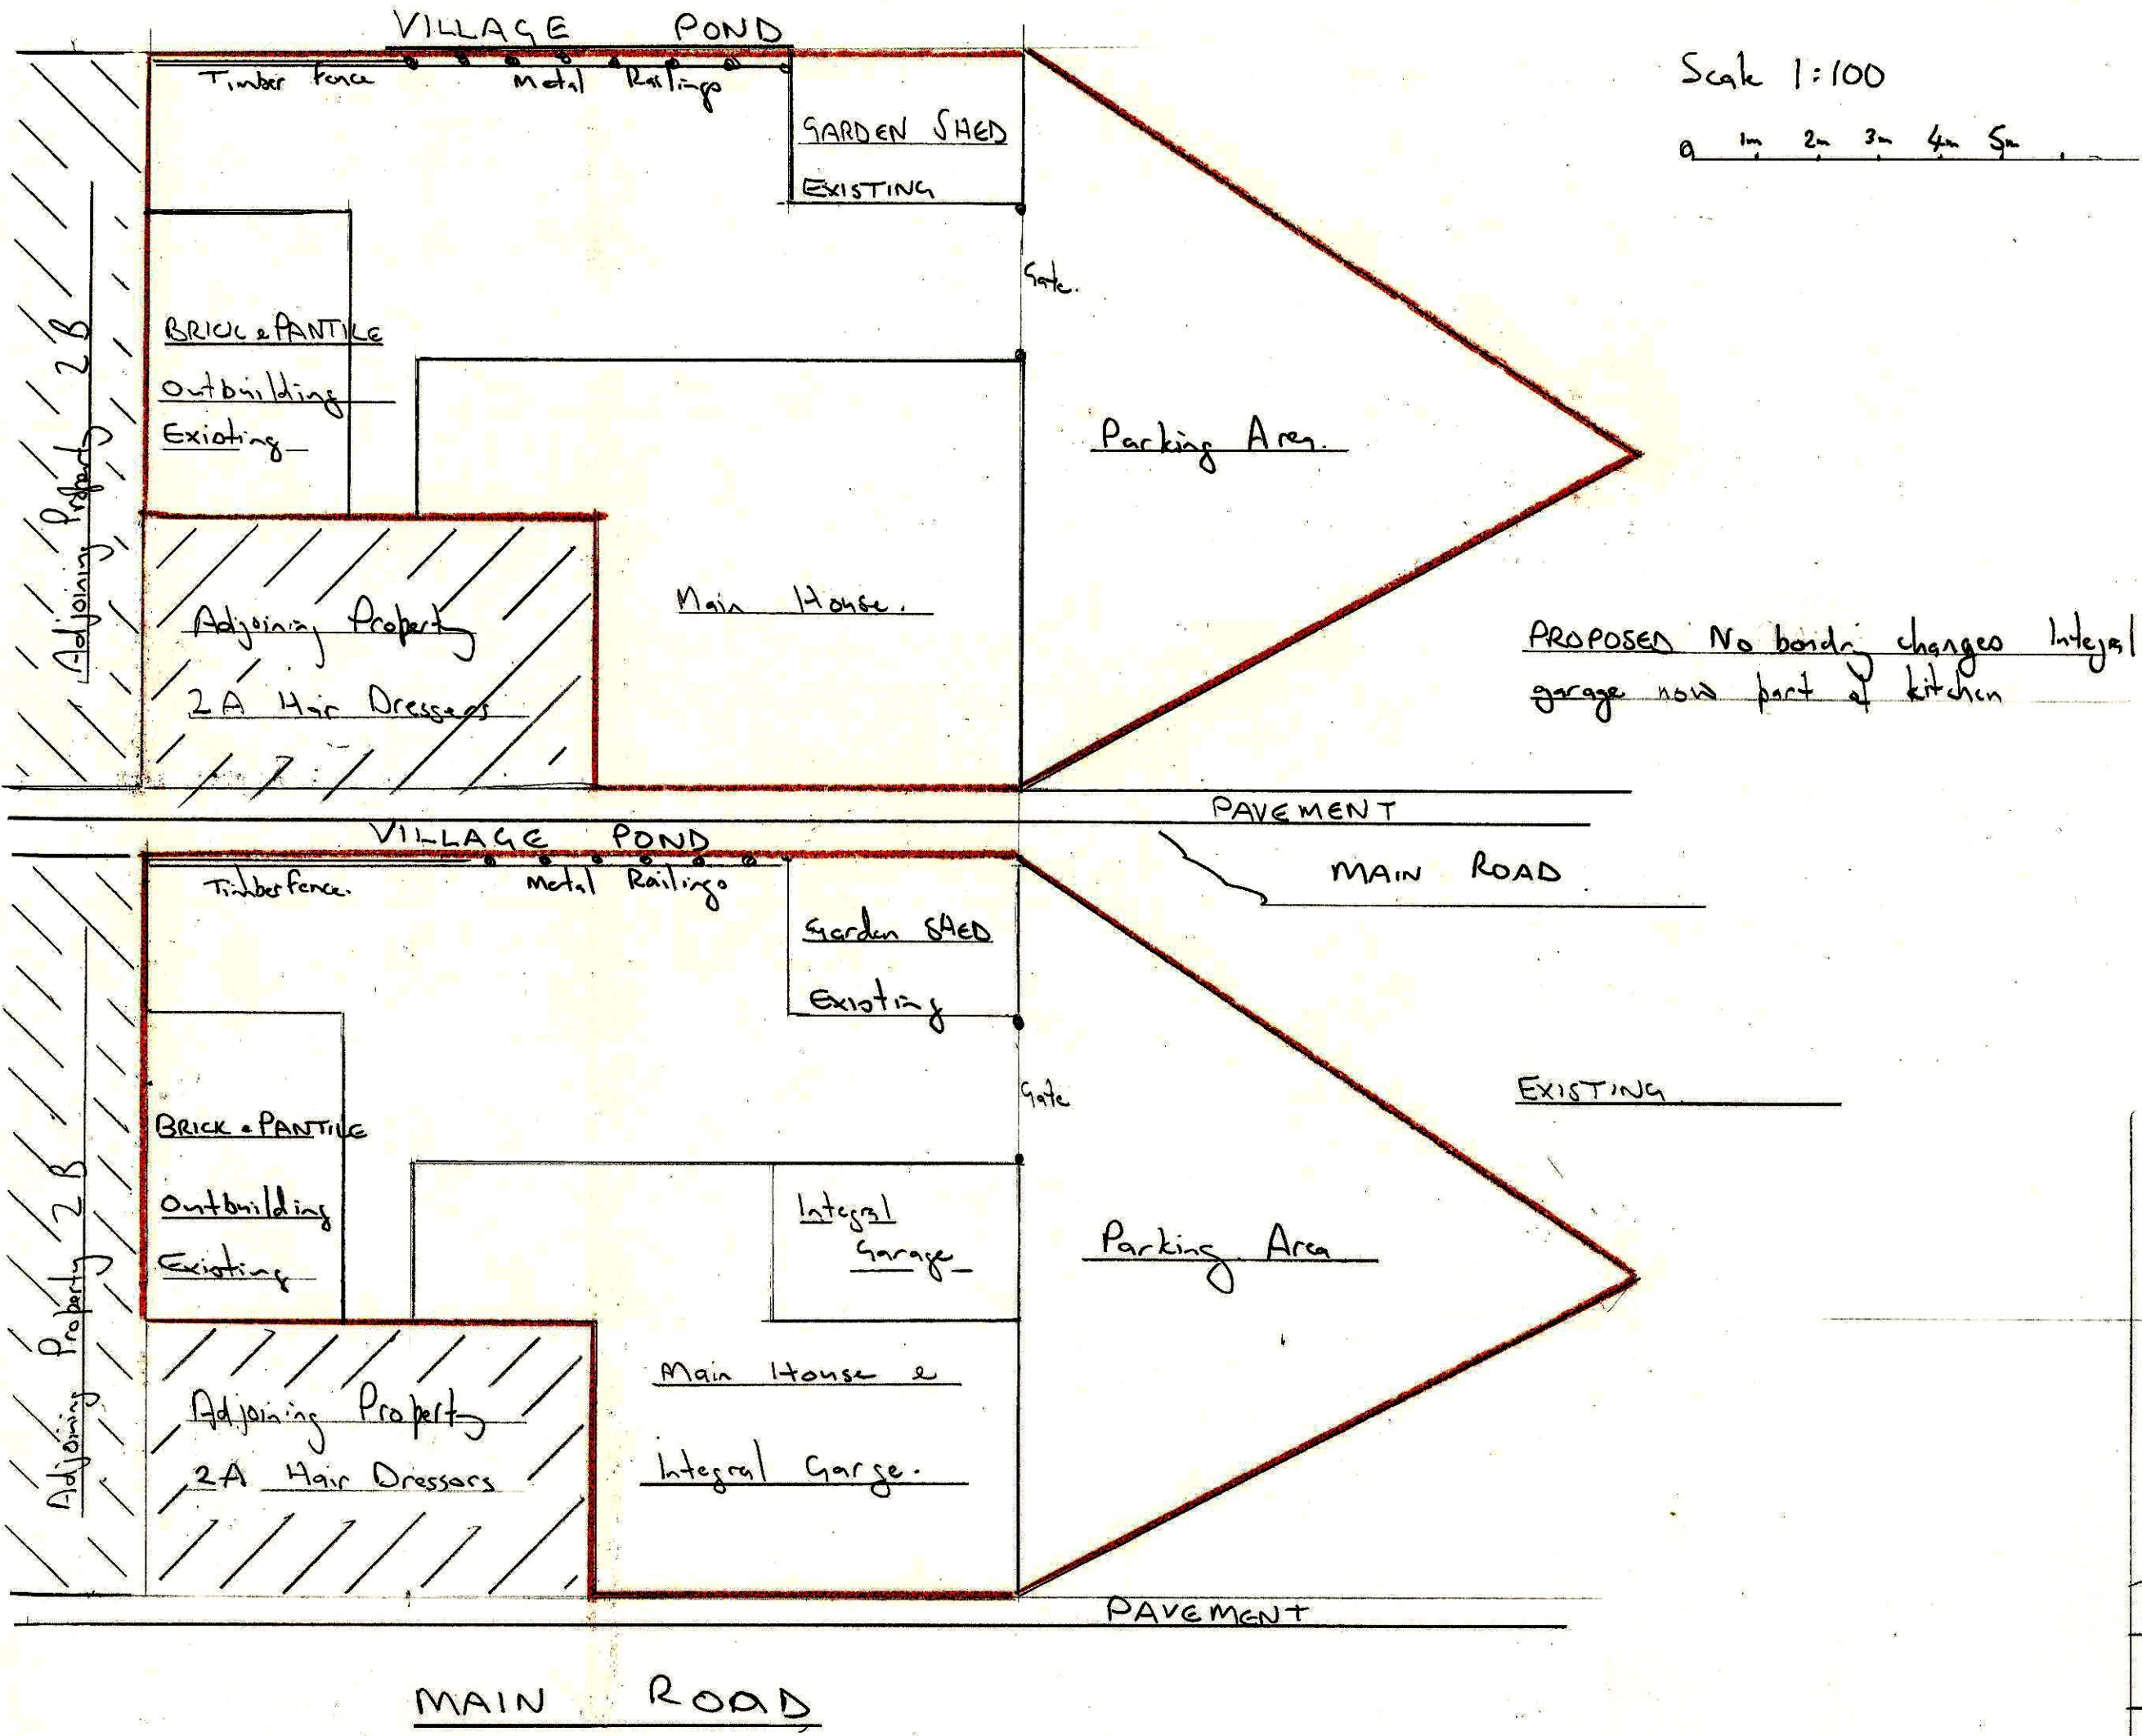 VILLAGE POND
Timber fence Metal Railings
GARDEN SHED
EXISTING
Scale 1:100
0 1m 2m 3m 4m 5m
Gate.
BRICK & PANTILE
Outbuilding
Existing
Adjoining Property 2B
Parking Area.
Adjoining Property
2A Hair Dressers
Main House.
PROPOSED No bondry changes Integral
garage now part of kitchen
PAVEMENT
MAIN ROAD
VILLAGE POND
Timber fence. Metal Railings
Garden SHED
Existing
Gate
EXISTING
BRICK & PANTILE
Outbuilding
Existing
Adjoining Property 2B
Integral
Garage
Parking Area
Adjoining Property
2A Hair Dressers
Main House &
Integral Garge.
PAVEMENT
MAIN ROAD